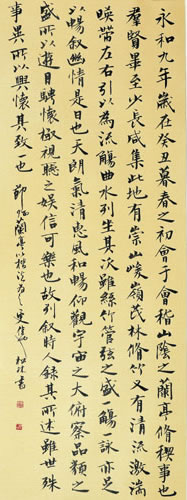 永和九年歲在癸丑暮春之初會于會稽山陰之蘭亭脩稧事也
群賢畢至少長咸集此地有崇山峻嶺茂林脩竹又有清流激湍
暎帶左右引以為流觴曲水列坐其次雖無絲竹管弦之盛一觴一詠亦足
以暢敘幽情是日也天朗氣清惠風和暢仰觀宇宙之大俯察品類之
盛所以遊目騁懷極視聽之娛信可樂也故列敘時人錄其所述雖世殊
事異所以興懷其致一也 節臨蘭亭以 書